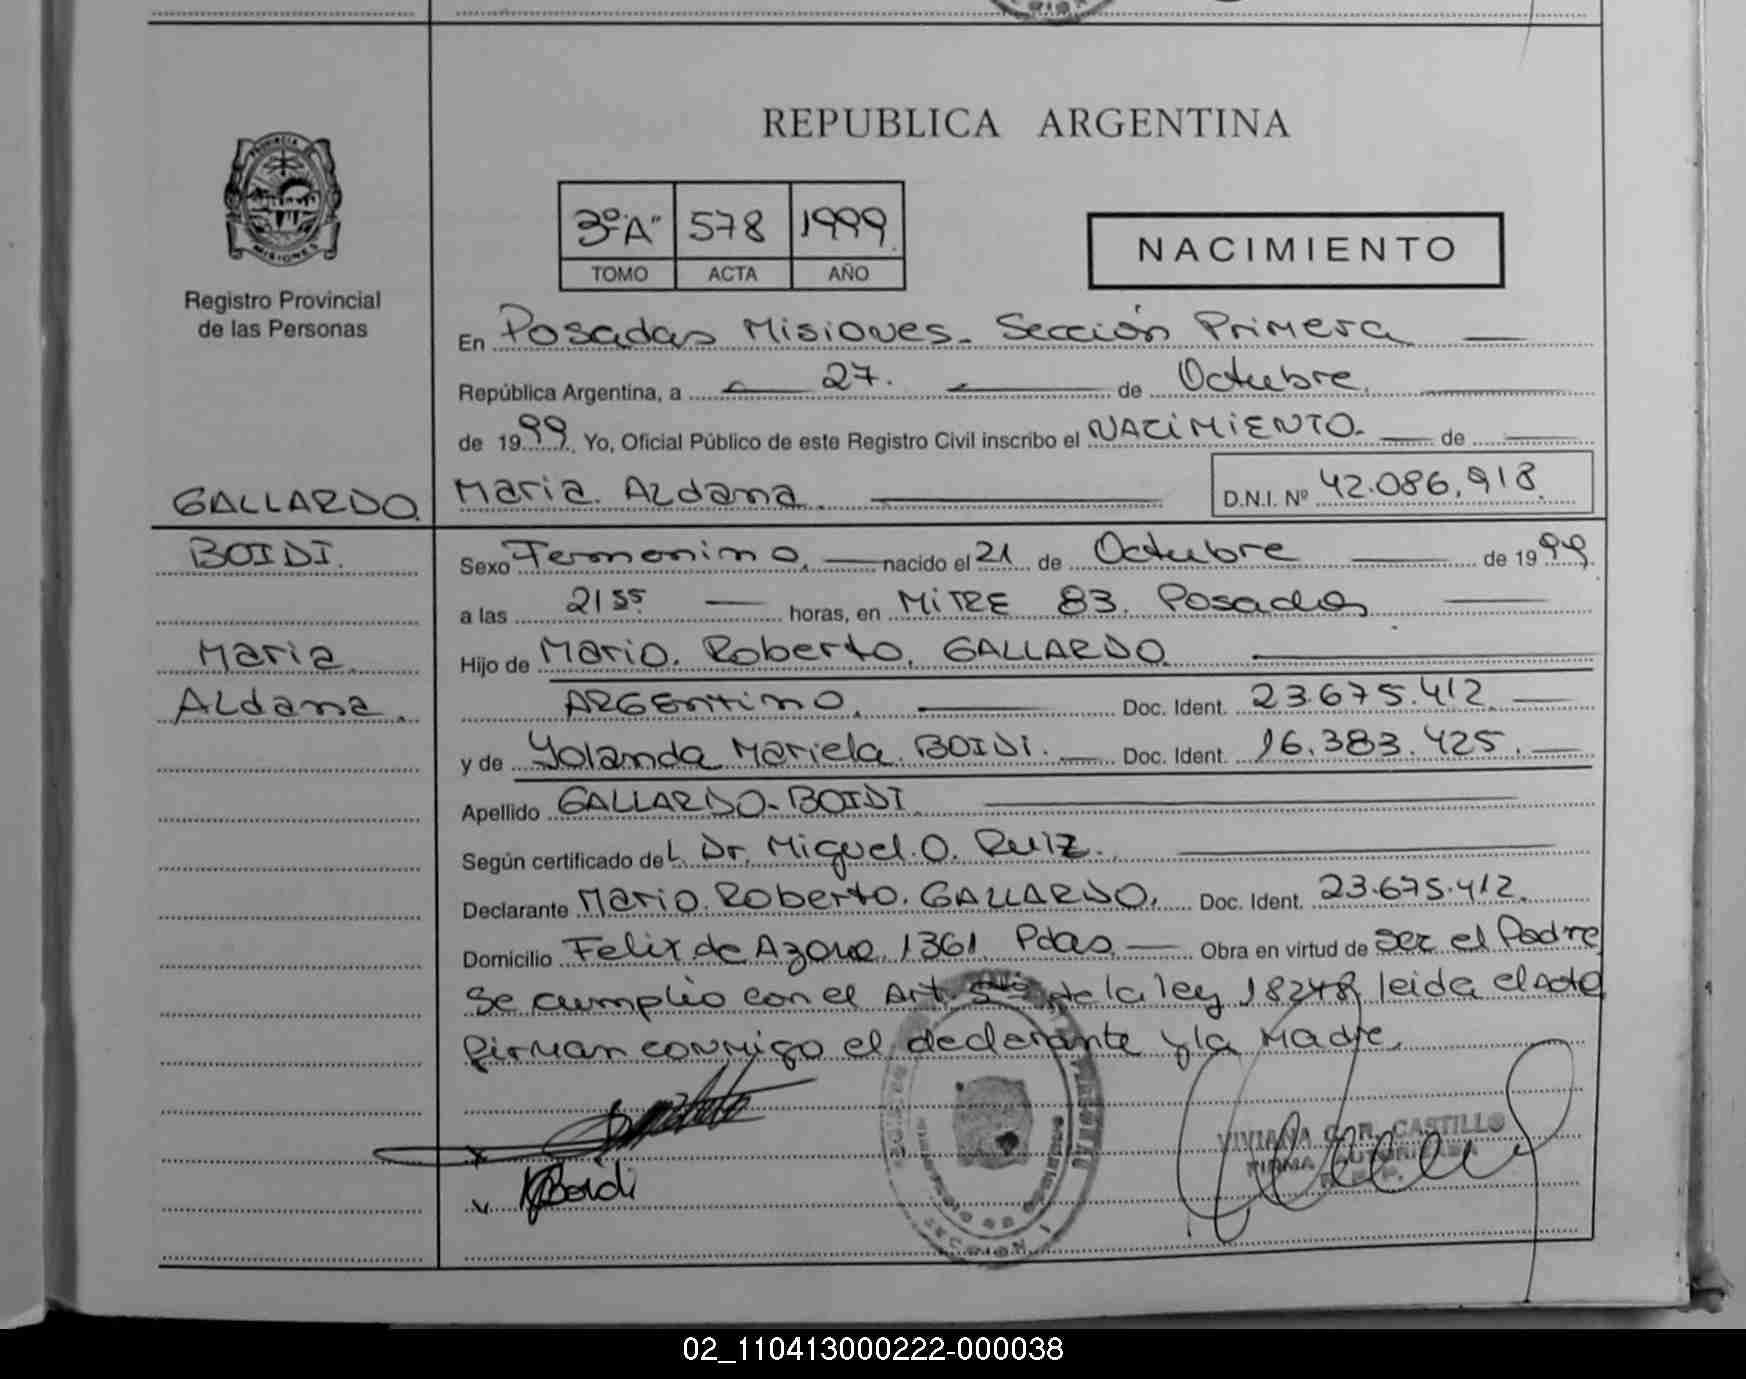 REPUBLICA ARGENTINA
PROVINCIA DE
MISIONES
Registro Provincial
de las Personas
3º "A" 578 1999
TOMO ACTA AÑO
NACIMIENTO
En Posadas Misiones. Sección Primera
República Argentina, a 27. de Octubre.
de 1999. Yo, Oficial Público de este Registro Civil inscribo el NACIMIENTO. de
GALLARDO Maria. Aldana D.N.I. Nº 42.086.918
BOIDI. Sexo Femenino. nacido el 21 de Octubre de 1999.
a las 21 55 horas, en MITRE 83. Posadas
Maria Hijo de Mario. Roberto. GALLARDO
Aldana. ARGENTINO. Doc. Ident. 23.675.412
y de Yolanda Mariela. BOIDI. Doc. Ident. 16.383.425.
Apellido GALLARDO-BOIDI
Según certificado del Dr. Miguel. O. Ruiz.
Declarante Mario. Roberto. GALLARDO. Doc. Ident. 23.675.412.
Domicilio Felix de Azara 1361 Pdas. Obra en virtud de ser el Padre
Se cumplio con el Art. 5to de la ley 18248, leida el acta
firman conmigo el declarante y la Madre.
VIVIANA CASTILLO
FIRMA AUTORIZADA
Boidi
02_110413000222-000038